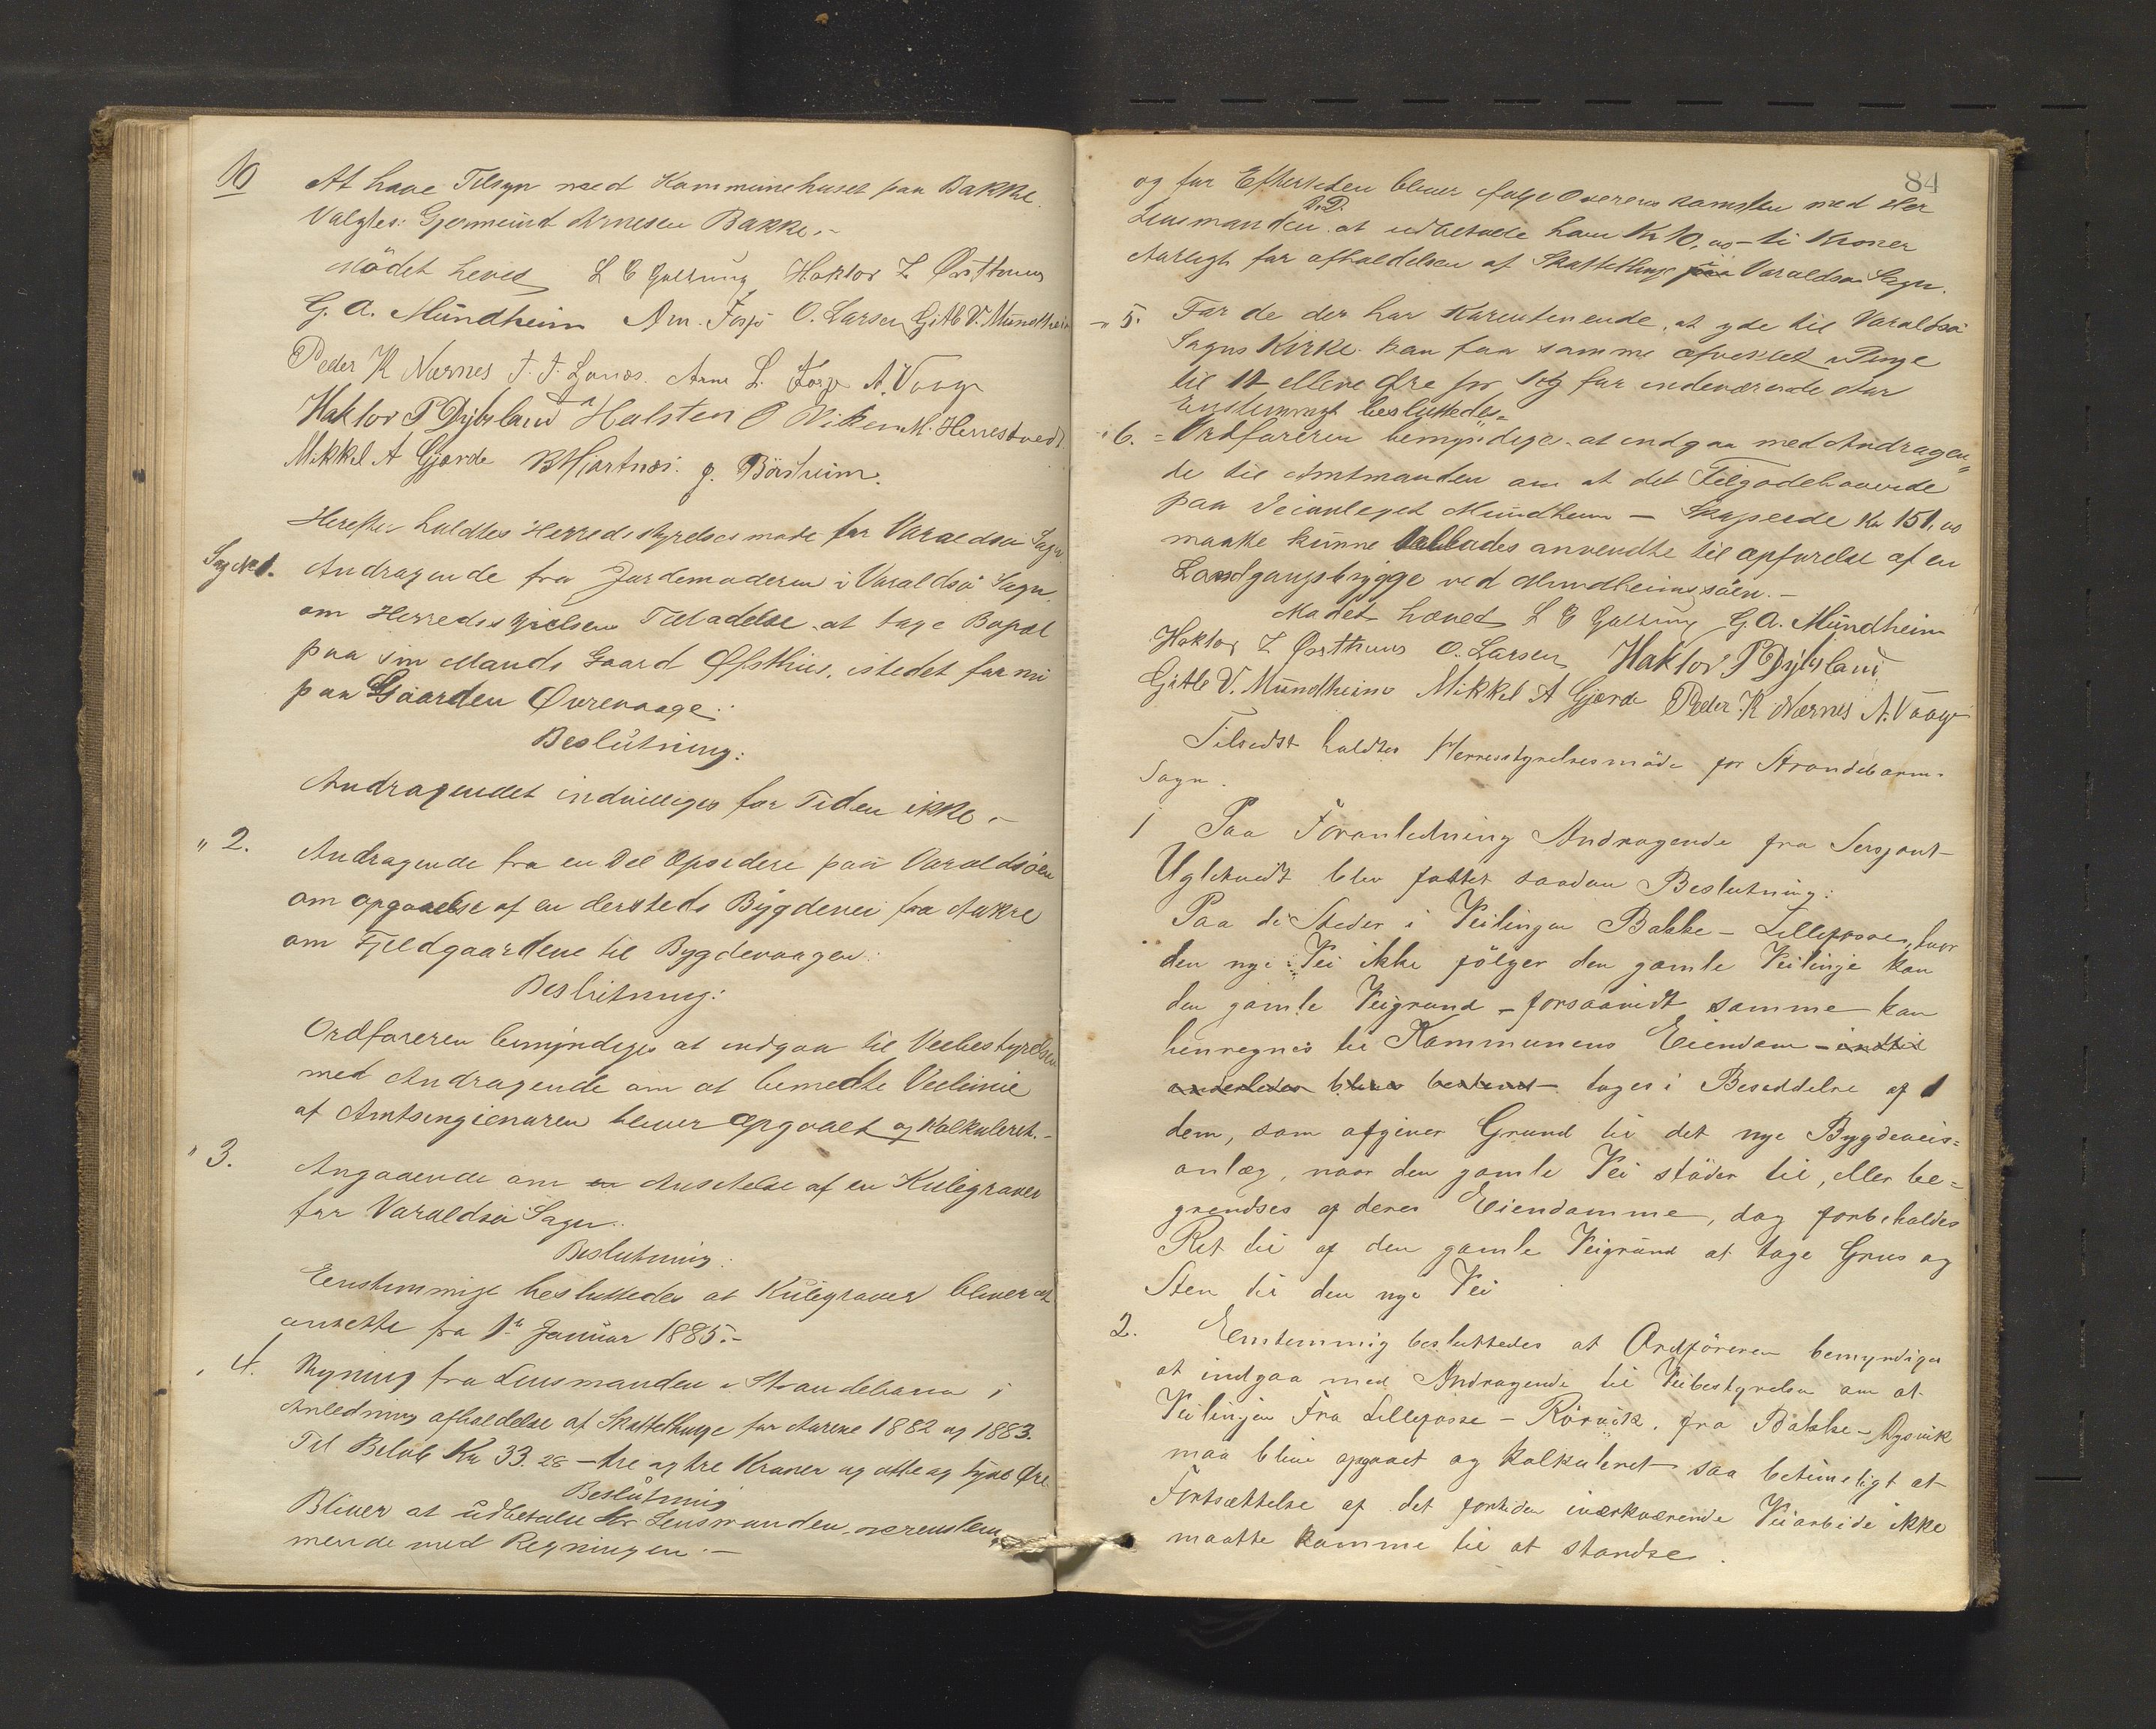 10 At have Tilsyn med Kommunehuset paa Bakke.
Valgtes: Gjermund Arnesen Bakke.-
Mødet hevet L E Haktor Z Østhuus
G. A. Mündheim Am. Fosse O. Larsen Gitle V. Mündheim
Peder K Nernes J. J. Arne L. A. Vaage
Haktor P Dÿbsland Halsten O Viken M. Herrestvedt
Mikkel A Gjerde B Hjartnes. g. Börsheim.
Herefter holdtes Herredsstyrelsesmøde for Varaldsø Sogn.
Sag No 1. Andragende fra Jordemoderen i Varaldsø Sogn,
om Herredsstyrelsens Tilladelse at tage Bopæl
paa sin Mands Gaard Øfsthus, istedet for nu
paa Gaarden Øvrevaage.
Beslutning:
Andragendet indvilliges for Tiden ikke.-
" 2. Andragende fra en Del Opsidere paa Varaldsøen
om opgaaelse af en dersteds Bygdevei fra Aakre
om Fjeldgaardene til Bygdevaagen.
Beslutning:
Ordføreren bemyndiges at indgaa til Veibestyrelsen
med Andragende om at bemeldte Veilinie
af Amtsingieniøren bliver opgaaet og kalkuleret.-
" 3. Angaaende om en Ansettelse af en Kulegraver
for Varaldsø Sogn.
Beslutning:
Eenstemmigt besluttedes at Kulegraver bliver at
ansette fra 1ste Januar 1885.-
" 4. Regning fra Lensmanden i Strandebarm i
Anledning afholdelse af Skattethinge for Aarene 1882 og 1883.
Til Beløb Kr 33.28 - tre og tre Kroner og otte og tyve Øre.
Beslutning
Bliver at udbetale Hr Lensmanden, overenstem
mende med Regningen.-
84
og for Eftertiden bliver ifølge Overenskomsten med Her
Lensmanden D.D. at udbetale ham Kr 10,00 - ti Kroner
Aarligt for afholdelsen af Skattething paa Varaldsø Sogn.
" 5. For de der har Kornutenende, at yde til Varaldsø
Sogns Kirke kan faa samme afvexlet i Penge
til 11 elleve Øre pr Kg for indeværende Aar
Enstemmigt besluttedes
" 6. Ordføreren bemyndiges at indgaa med Andragen-
de til Amtmanden om at det Tilgodehavende
paa Veianleget Mundheim - Skogseide Kr 151,00
maatte kunne tillades anvendte til opførelse af en
Landgangsbrygge ved Mundheimssøen.-
Mødet hævet L E G. A. Mündheim
Haktor Z Østhuus O. Larsen Haktor P Dÿbsland
Gitle V. Mündheim Mikkel A Gjerde Peder K Nernes A. Vaage
Tilsidst holdtes Herredsstyrelsesmöde for Strandebarm-
Sogn.
1 Paa Foranledning Andragende fra Sersjant
Ugletvedt blev fattet saadan Beslutning:
Paa de Steder i Veilinjen Bakke - Lillefosse, hvor
den nye Vei ikke fölger den gamle Veilinje kan
den gamle Veigrund - forsaavidt samme kan
henregnes til Kommunens Eiendom - indtil
anderledes blev bestemt tages i Besiddelse af
dem, som afgiver Grund til det nye Bygdeveis=
anlæg, naar den gamle Vei stöder til, eller be=
grendses af deres Eiendomme, dog forbeholdes
Ret til af den gamle Veigrund at tage Grus og
Sten til den nye Vei
2. Eenstemmig besluttedes at Ordföreren bemyndiges
at indgaa med Andragende til Veibestyrelsen om at
Veilinjen Fra Lillefosse - Rörvik, fra Bakke - Rysvik
maa blive opgaaet og kalkuleret saa betimeligt at
Fortsættelse af det fortiden iværkværende Veiarbeide ikke
maatte komme til at standse.